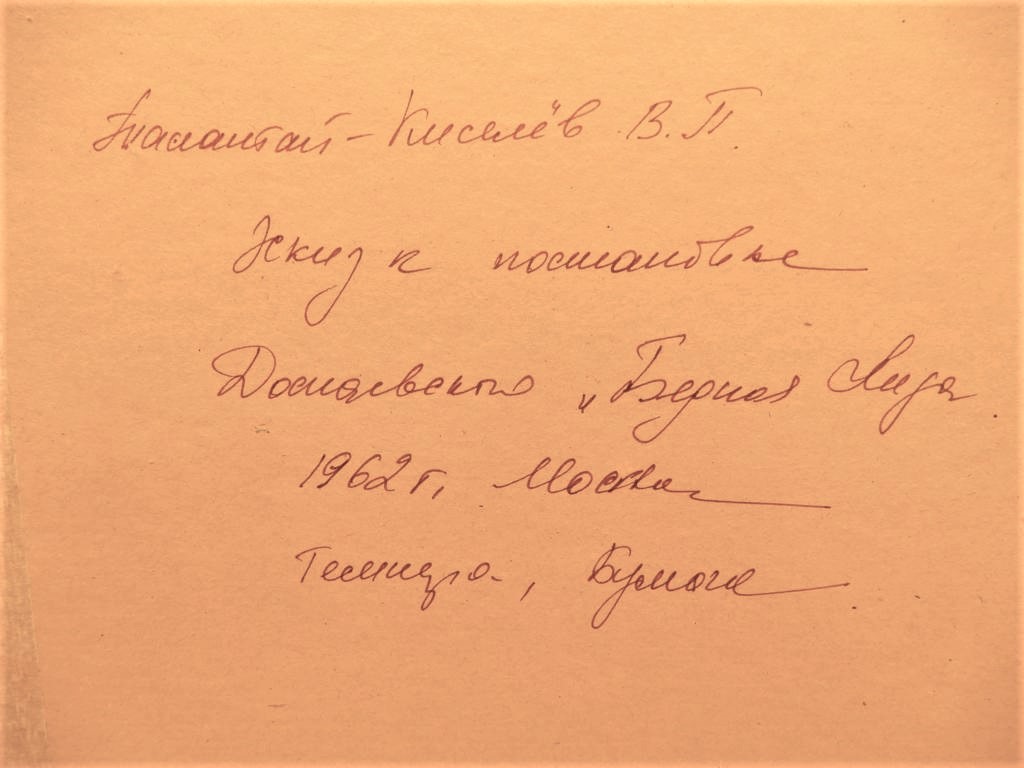 Киселёв В. П.
Эскиз к постановке
Достоевского „Бедная Лиза
1962 г., Москва
Темпера, бумага